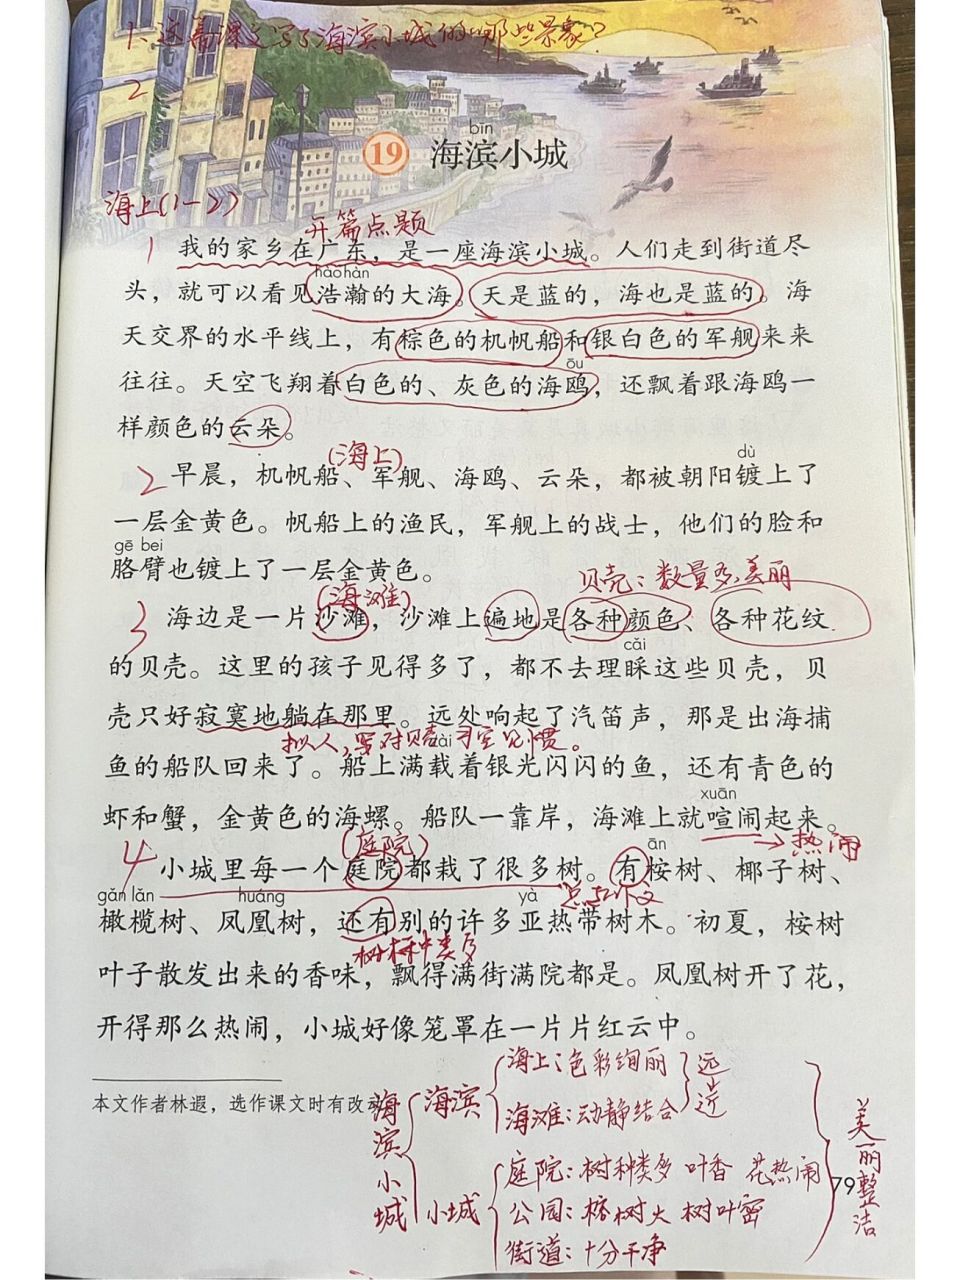 1.这篇课文写了海滨小城的哪些景象?
2
bīn
19 海滨小城
海上(1-2)
开篇点题
1 我的家乡在广东，是一座海滨小城。人们走到街道尽
hào hàn
头，就可以看见浩瀚的大海。天是蓝的，海也是蓝的。海
天交界的水平线上，有棕色的机帆船和银白色的军舰来来
ōu
往往。天空飞翔着白色的、灰色的海鸥，还飘着跟海鸥一
样颜色的云朵。
(海上)
dù
2 早晨，机帆船、军舰、海鸥、云朵，都被朝阳镀上了
一层金黄色。帆船上的渔民，军舰上的战士，他们的脸和
gē bei
胳臂也镀上了一层金黄色。
贝壳：数量多,美丽
(海滩)
3 海边是一片沙滩，沙滩上遍地是各种颜色、各种花纹
cǎi
的贝壳。这里的孩子见得多了，都不去理睬这些贝壳，贝
壳只好寂寞地躺在那里。远处响起了汽笛声，那是出海捕
拟人,写对贝壳习空见惯。
zài
鱼的船队回来了。船上满载着银光闪闪的鱼，还有青色的
xuān
虾和蟹，金黄色的海螺。船队一靠岸，海滩上就喧闹起来。
→热闹
(庭院)
ān
4 小城里每一个庭院都栽了很多树。有桉树、椰子树、
gǎn lǎn huáng yà
总起下文
橄榄树、凤凰树，还有别的许多亚热带树木。初夏，桉树
树木种类多
叶子散发出来的香味，飘得满街满院都是。凤凰树开了花，
开得那么热闹，小城好像笼罩在一片片红云中。
本文作者林遐，选作课文时有改动
海滨小城
海滨
海上：色彩绚丽
海滩：动静结合
远
近
小城
庭院：树种类多 叶香 花热闹
公园：榕树大 树叶密
街道：十分干净
美丽整洁
79